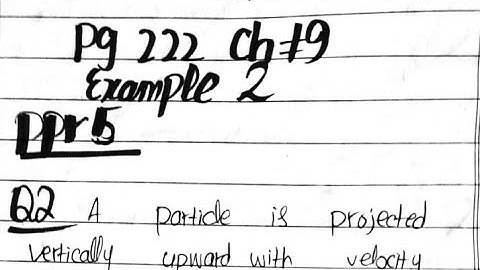 Pg 222 Ch#9
Example 2
ppr 5
Q2 A particle is projected
vertically upward with velocity